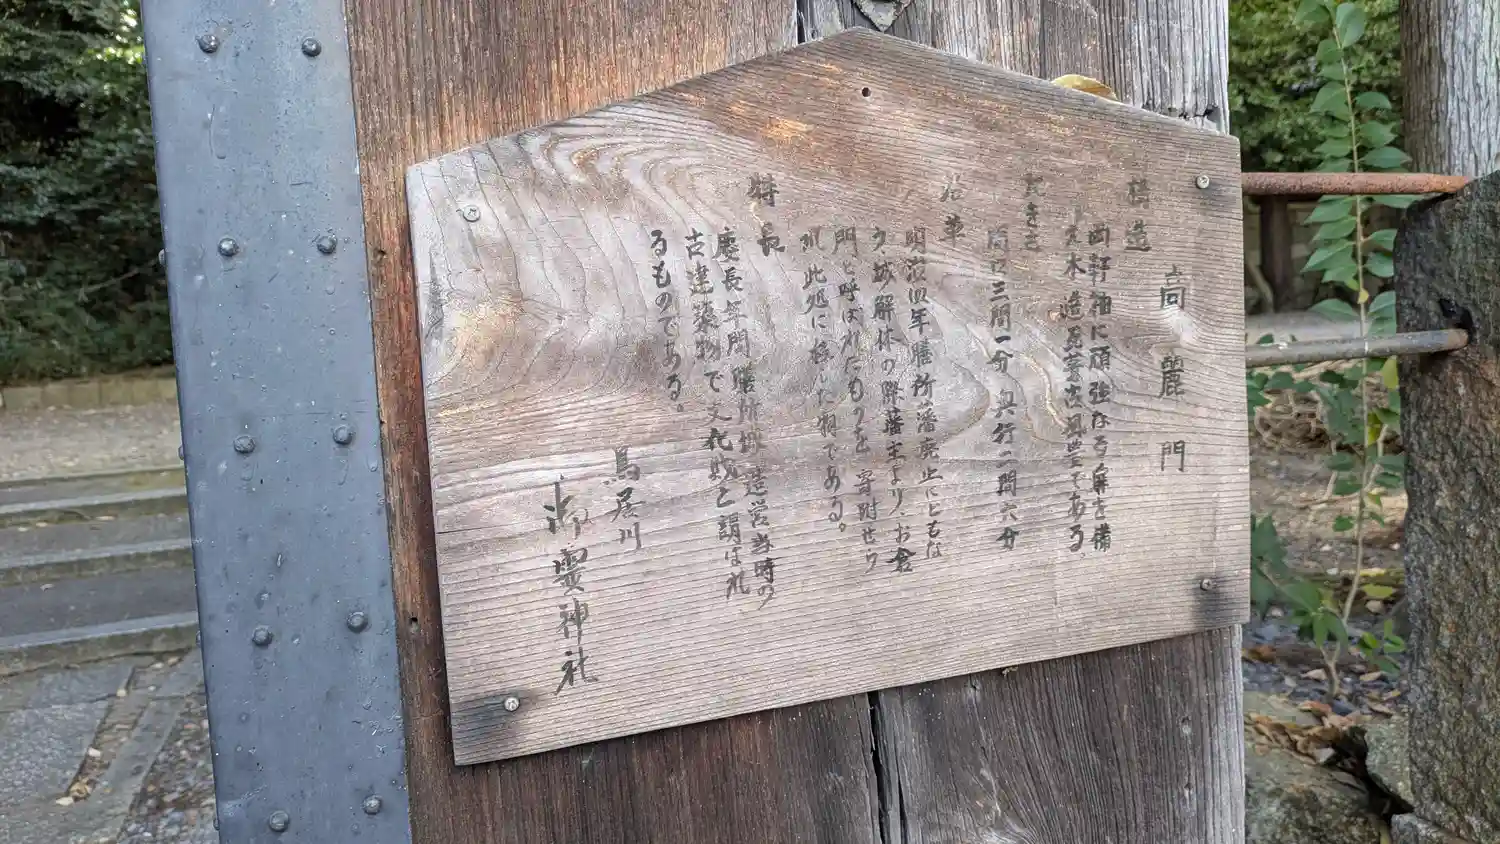 高麗門
構造
両軒袖に頑強なる扉を備
え木造瓦葺
である。
大きさ
間口三間一分 奥行二間六分
沿革
明治四年膳所藩廃止にともな
う、城解体の際藩主より、お倉
門と呼ばれたものを 寄附せら
れ此処に移した門である。
特長
慶長年間膳所城造営当時の
古建築物で文化財と謂はれ
るものである。
鳥居川
御霊神社